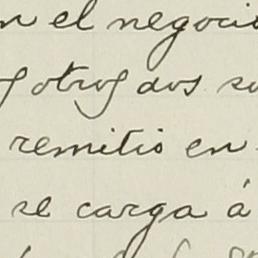 n el negocio
y otros dos su
remitio en
se carga á